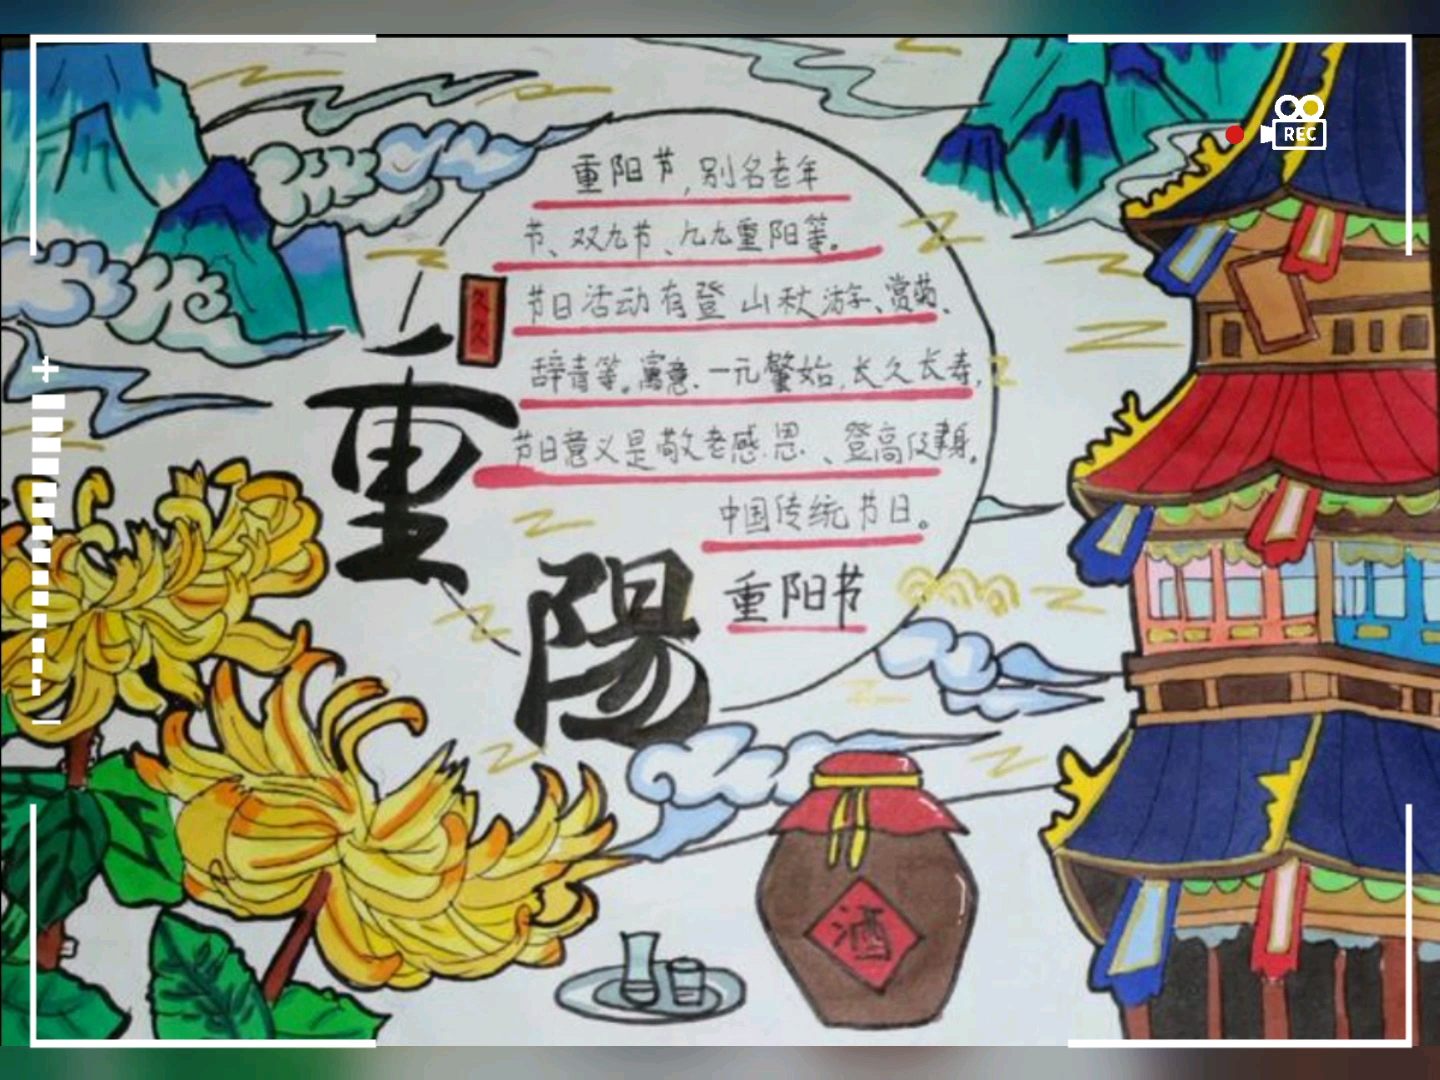 重阳节,别名老年
节、双九节、九九重阳等。
节日活动有登山秋游、赏菊、
辞青等。寓意.一元肇始,长久长寿,
节日意义是敬老感恩、登高健身。
中国传统节日。
重阳节
久久
重陽
酒
REC